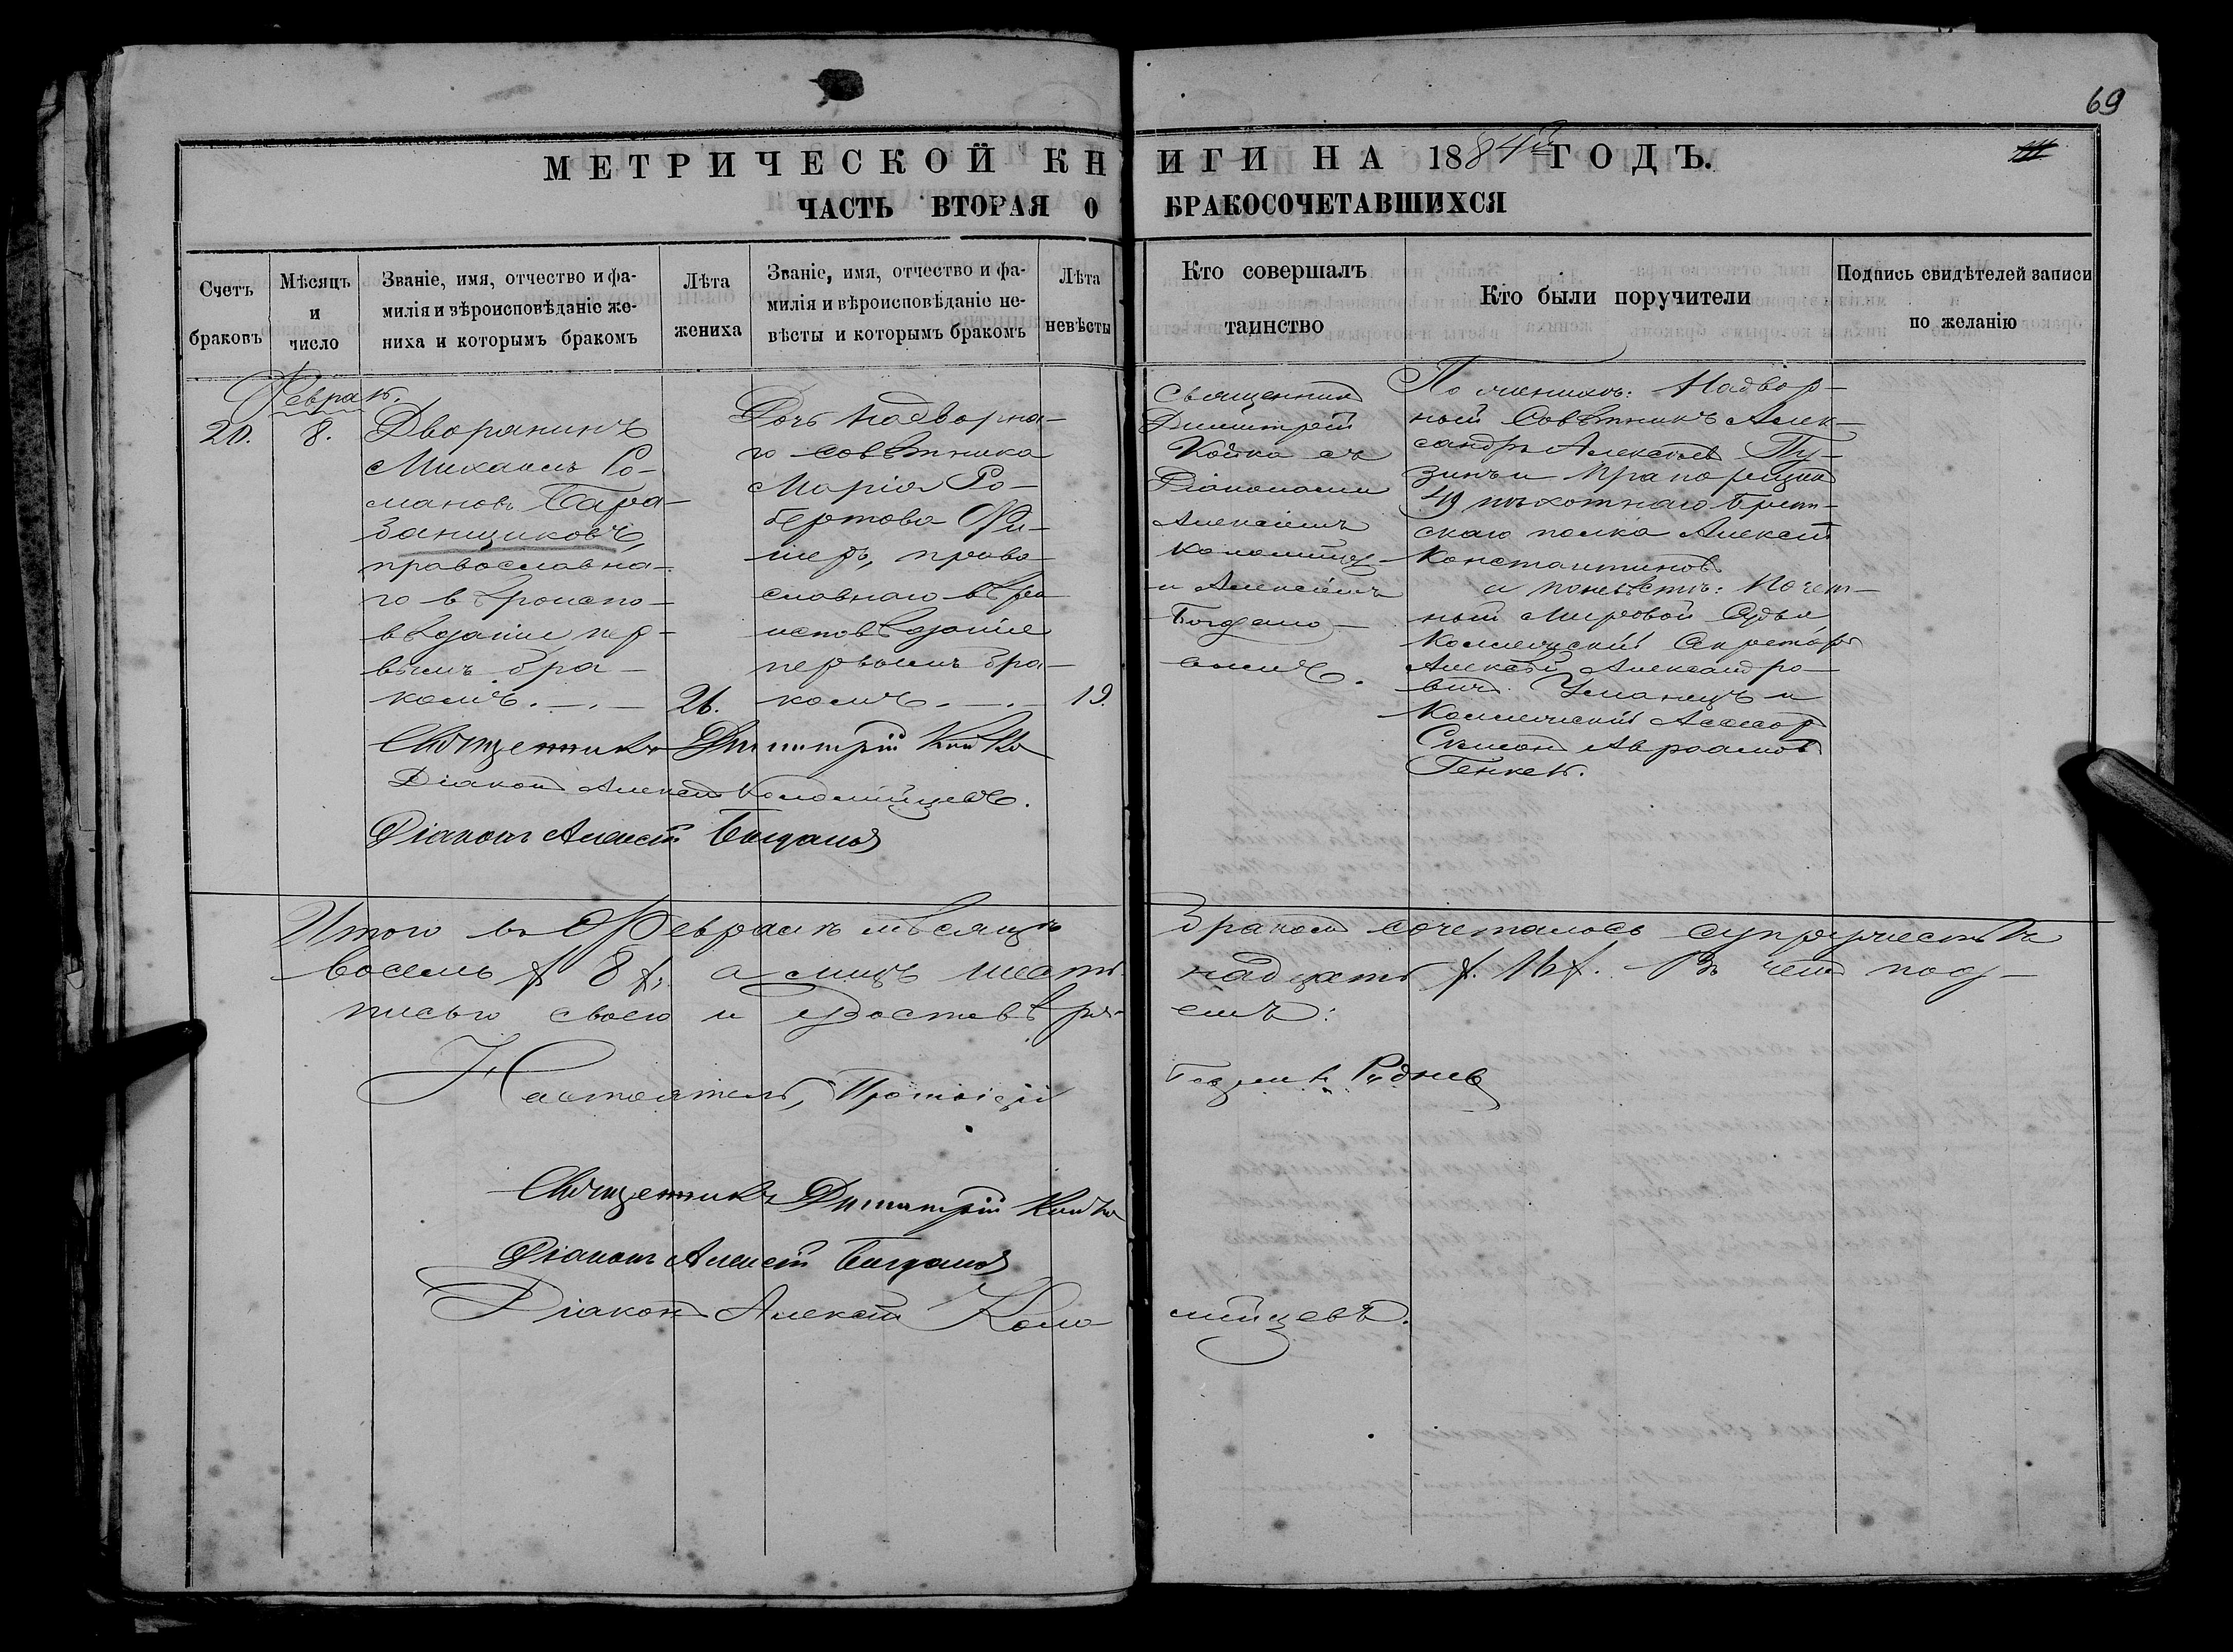 69
МЕТРИЧЕСКОЙ КНИГИ НА 1884й ГОДЪ.
ЧАСТЬ ВТОРАЯ О БРАКОСОЧЕТАВШИХСЯ
Счетъ
браковъ
Мѣсяцъ
и
число
Званіе, имя, отчество и фа-
милія и вѣроисповѣданіе же-
ниха и которымъ бракомъ
Лѣта
жениха
Званіе, имя, отчество и фа-
милія и вѣроисповѣданіе не-
вѣсты и которымъ бракомъ
Лѣта
невѣсты
Кто совершалъ
таинство
Кто были поручители
Подпись свидѣтелей записи
по желанію
Февраль.
20.
8.
Дворянинъ
Михаилъ Ро-
мановъ Бара-
банщиковъ,
православна-
го вѣроиспо-
вѣданія, пер-
вымъ бра-
комъ.
26.
Дочь Надворна-
го совѣтника
Марія Ро-
бертова Фи-
шеръ, право-
славнаго вѣро
исповѣданія
первымъ бра-
комъ.
19.
Священникъ
Димитрій
Койко съ
Діаконами
Алексіемъ
Коломійцев-
и Алексіемъ
Богдано-
вымъ.
По женихѣ: Надвор-
ный Совѣтникъ Алек-
сандръ Алексѣевъ Пу-
зинъ и Прапорщикъ
49 пѣхотнаго Брест-
скаго полка Алексѣй
Константиновъ
а по невѣстѣ: Почет-
ный Мировой Судья
Коллежскій Секретарь
Алексѣй Александро-
вичъ Уманецъ и
Коллежскій Асессоръ
Симонъ Авраамовъ
Генкель.
Священникъ Димитрій Койко
Діаконъ Алексѣй Коломійцевъ.
Діаконъ Алексѣй Богдановъ
Итого въ Февралѣ мѣсяцѣ бракомъ сочеталось супружествъ
восемь 8, а лицъ шестнадцать 16. Въ чемъ под-
писью своею и удостовѣряемъ:
Настоятель, Протоіерей Руднев
Священникъ Димитрій Койко
Діаконъ Алексѣй Богдановъ
Діаконъ Алексѣй Коломійцевъ.